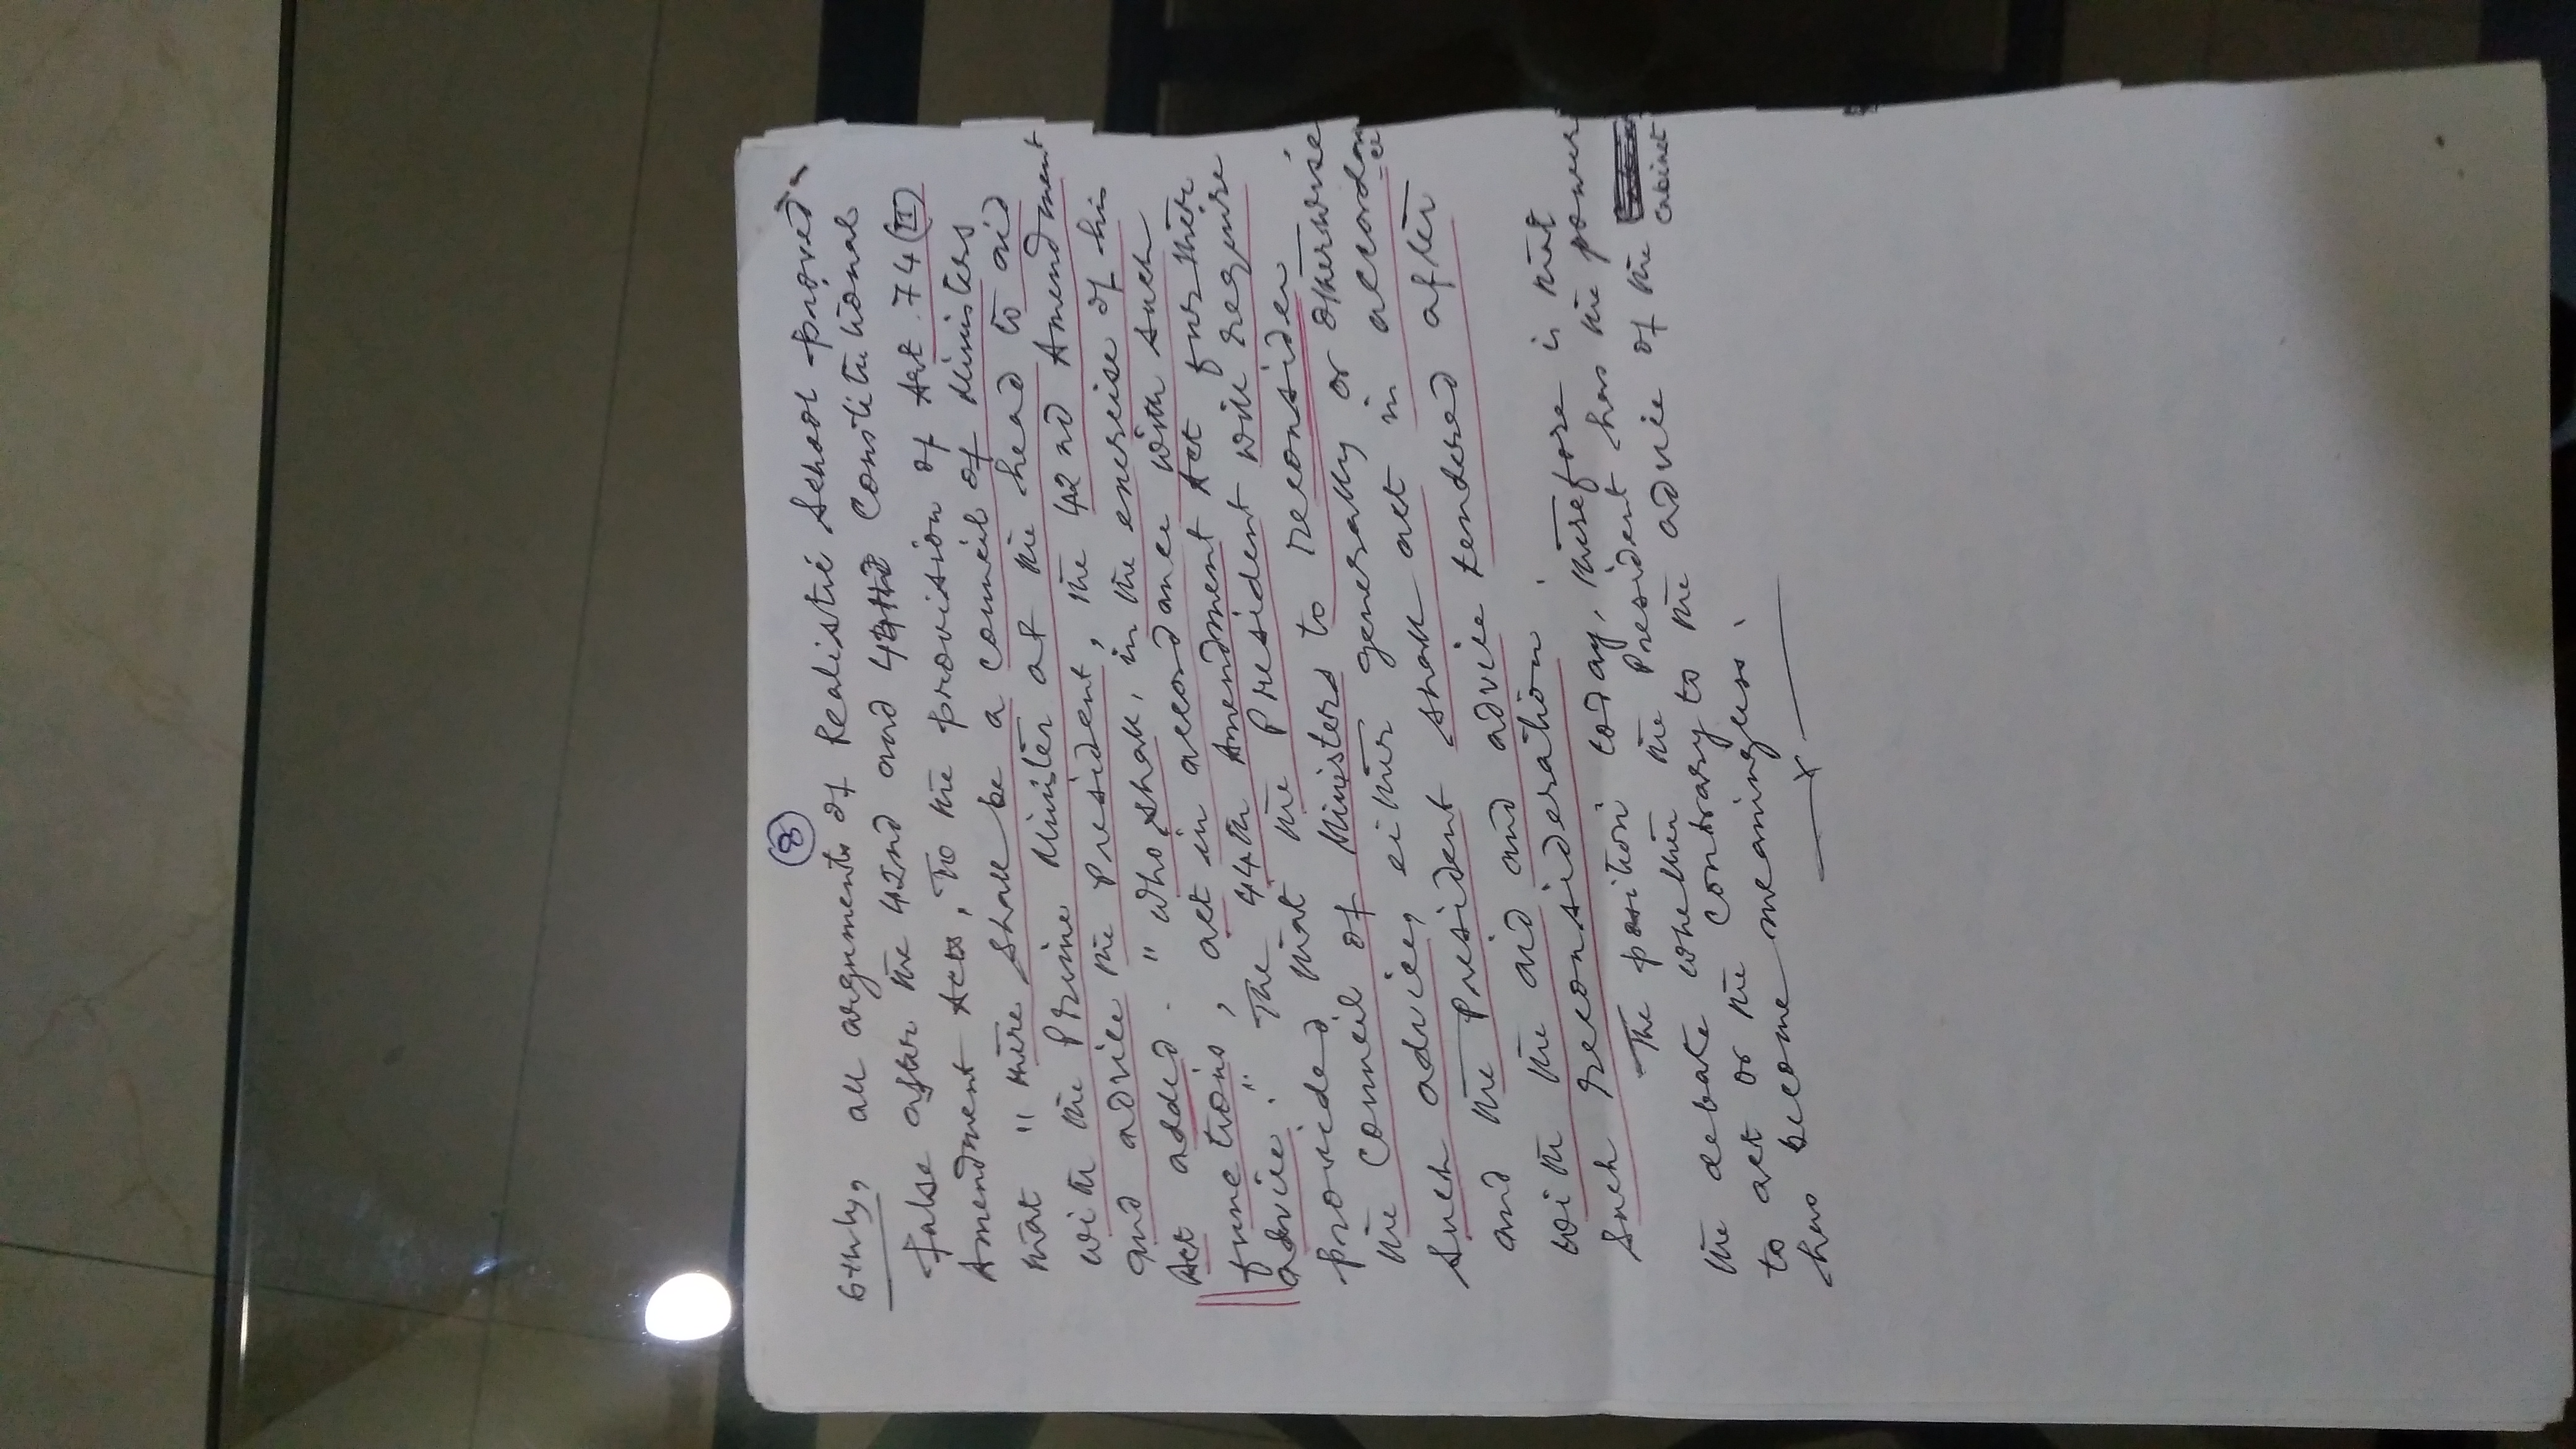 (8)
6thly, all arguments of Realistic School proved
false after the 42nd and 44th Constitutional
Amendment Acts, To the provision of Art. 74(II)
that "there shall be a council of Ministers
with the Prime Minister at the head to aid
and advice the President, the 42nd Amendment
Act added. "who, shall, in the exercise of his
functions, act in accordance with such
advice." The 44th Amendment Act further
provided that the President will require
the Council of Ministers to reconsider
such advice, either generally or otherwise
and the President shall act in accordance
with the and and advice tendered after
such reconsideration.
The position today, therefore is that
the debate whether the President has the power
to act or the contrary to the advice of the cabinet
has become meaningless.